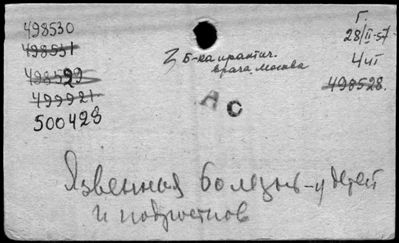 498530
498531
498529
499921
500428
Б-ка практич.
врача Москва
Г.
28/II-57
4 чп
498528
А С
Язвенная болезнь - у детей
и подростков